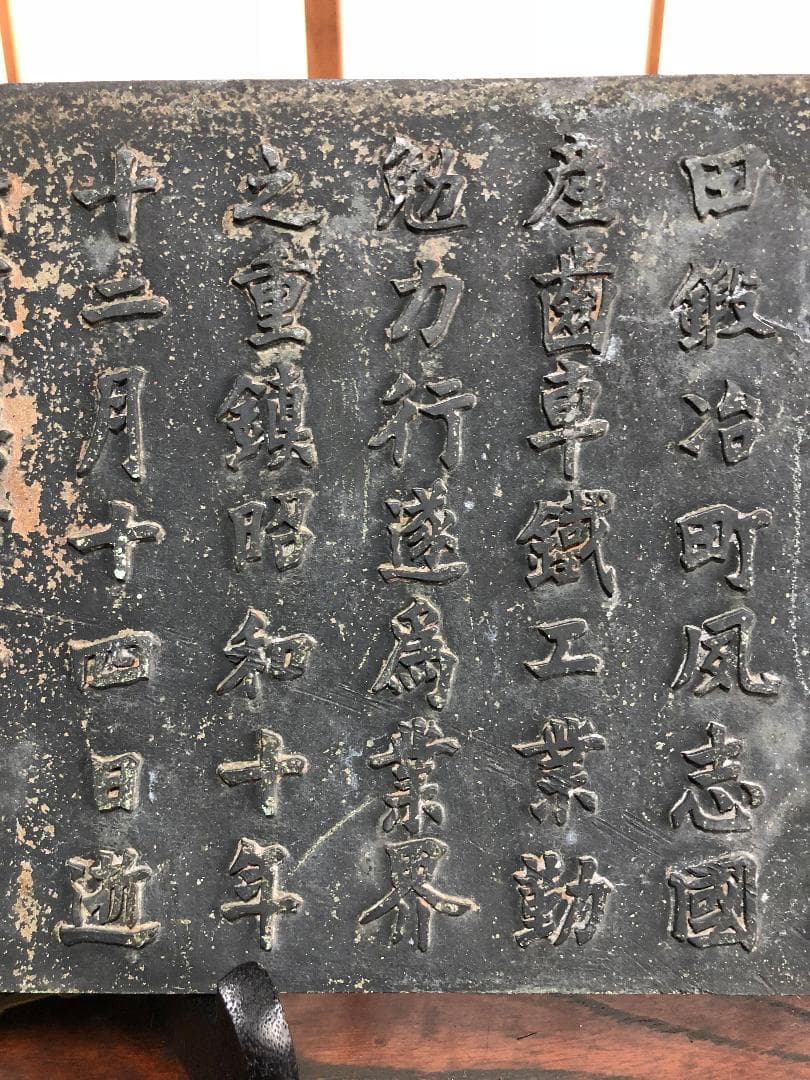 田鍛冶町夙志國
産齒車鐵工業勤
勉力行遂爲業界
之重鎮昭和十年
十二月十四日逝